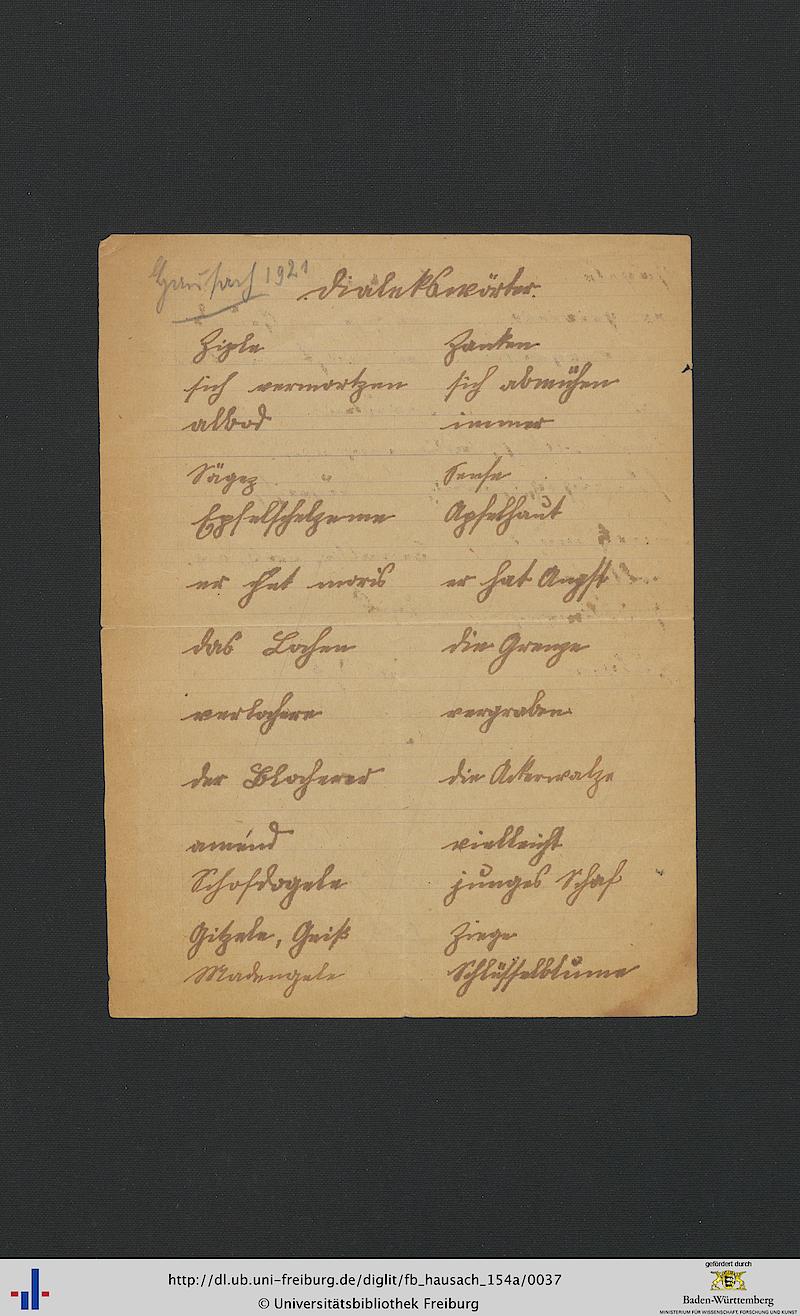 Hausach 1921
Dialekswörter.
Ziple Zanken
sich vermortzen sich abmühen
allbod immer
Sägez Sense
Epfelschelzeme Apfelhaut
er het moris er hat Angst
das Lochen die Grenze
verlochere vergraben
der Blocherer die Ackerwalze
amend vielleicht
Schofdogele junges Schaf
Gitzele, Geiß Ziege
Madengele Schlüsselblume
http://dl.ub.uni-freiburg.de/diglit/fb_hausach_154a/0037
© Universitätsbibliothek Freiburg
gefördert durch
Baden-Württemberg
MINISTERIUM FÜR WISSENSCHAFT, FORSCHUNG UND KUNST